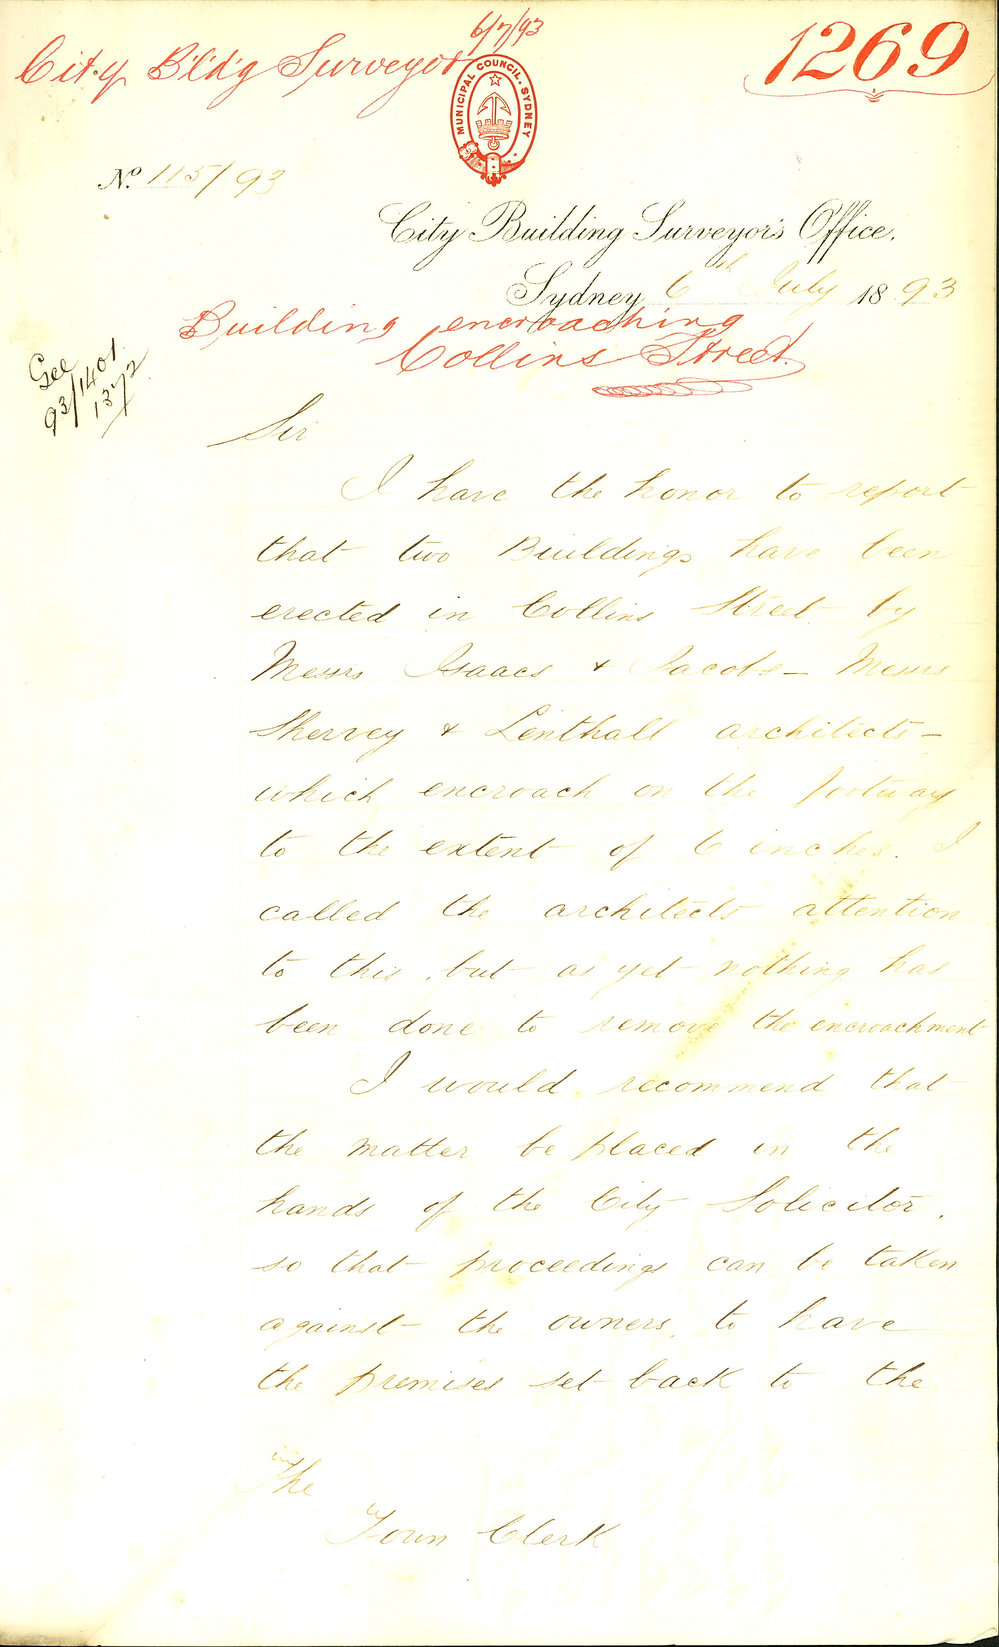 6/7/93
City Bldg Surveyor
1269
MUNICIPAL COUNCIL. SYDNEY
No. 115/93
City Building Surveyor's Office.
Sydney 6th July 1893
Building encroaching
Collins Street
See
93/1401
1372
Sir
I have the honor to report
that two Buildings have been
erected in Collins Street by
Messrs Isaacs & Jacobs - Messrs
Shervey & Lenthall architects -
which encroach on the footway
to the extent of 6 inches. I
called the architects attention
to this, but as yet nothing has
been done to remove the encroachment
I would recommend that
the matter be placed in the
hands of the City Solicitor,
so that proceedings can be taken
against the owners, to have
the premises set back to the
The
Town Clerk